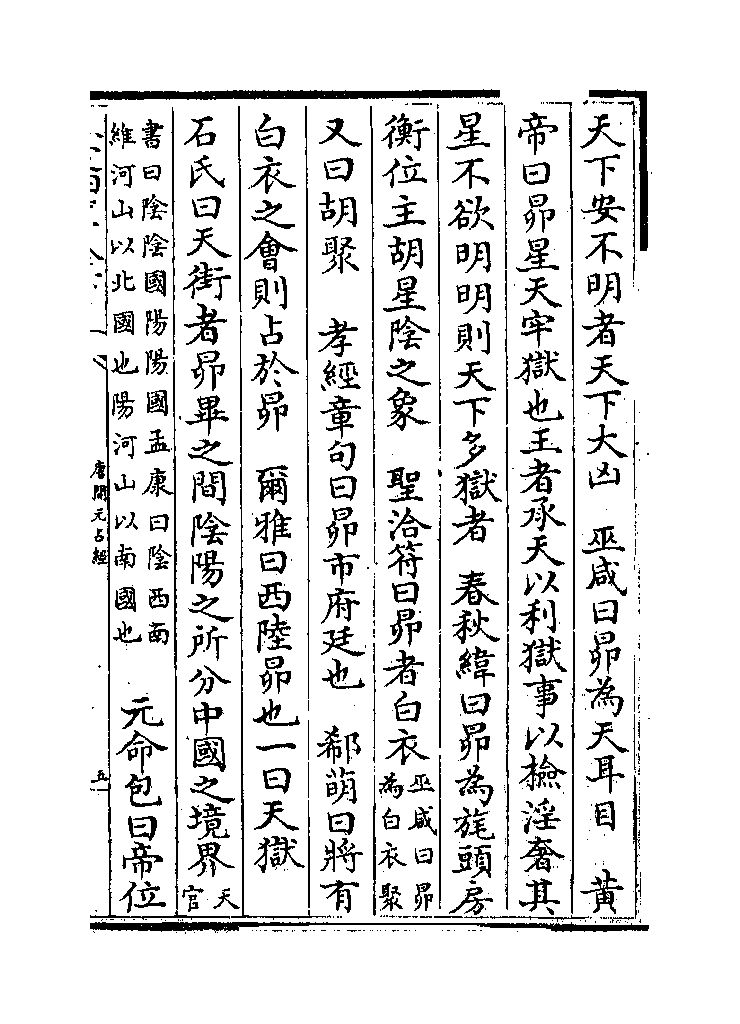 天下安不明者天下大凶　巫咸曰昴為天耳目　黄
帝曰昴星天牢獄也王者承天以利獄事以檢淫奢其
星不欲明明則天下多獄者　春秋緯曰昴為旄頭房
衡位主胡星陰之象　聖洽符曰昴者白衣巫咸曰昴為白衣聚
又曰胡聚　孝經章句曰昴市府廷也　郗萌曰將有
白衣之會則占於昴　爾雅曰西陸昴也一曰天獄
石氏曰天街者昴畢之間陰陽之所分中國之境界天官
書曰陰陰國陽陽國孟康曰陰西南維河山以北國也陽河山以南國也　元命包曰帝位
唐開元占經
五